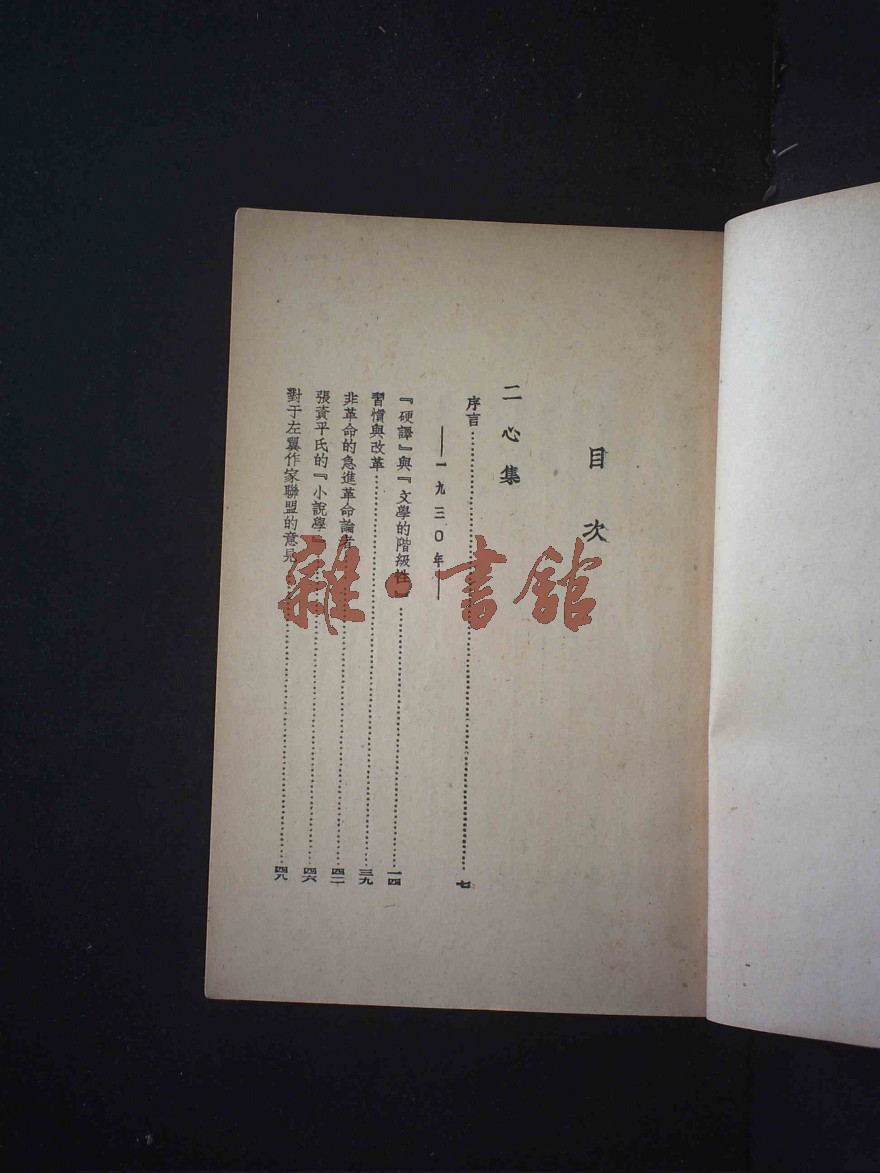 目次
二心集
序言……七
——一九三〇年——
『硬譯』與『文學的階級性』……一四
習慣與改革……三九
非革命的急進革命論者……四二
張資平氏的『小說學』……四六
對于左翼作家聯盟的意見……四八
雜·書館